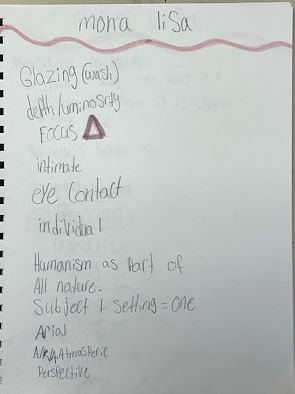 mona lisa
Glazing (wash)
depth/luminosity
Focus
intimate
eye contact
individual
Humanism as part of
All nature.
Subject + Setting = one
Arial
A/K/A Atmosperic
Perspective